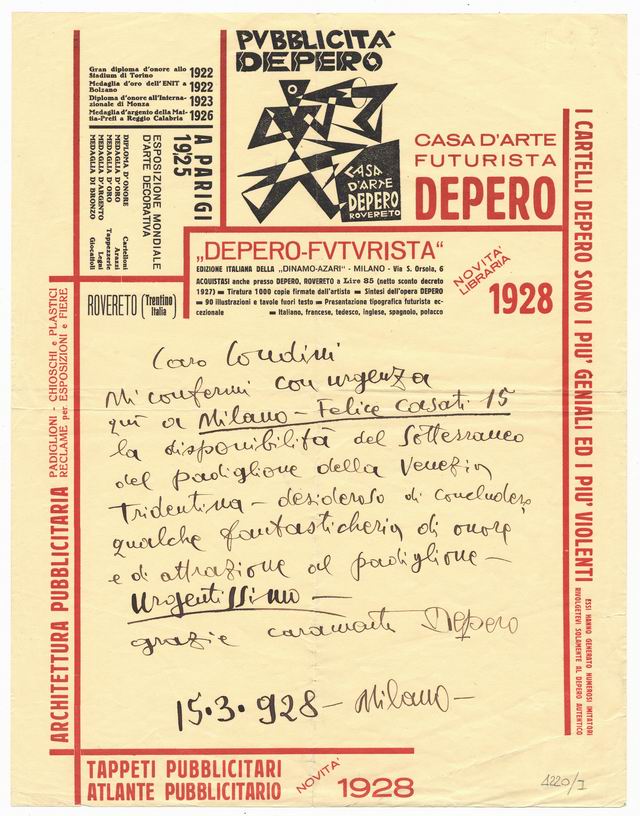 PVBBLICITA'
DEPERO
CASA
D'ARTE
DEPERO
ROVERETO
Gran diploma d'onore allo
Stadium di Torino 1922
Medaglia d'oro dell'ENIT a
Bolzano 1922
Diploma d'onore all'Interna-
zionale di Monza 1923
Medaglia d'argento della Mat-
tia-Preti a Reggio Calabria 1926
A PARIGI
1925
ESPOSIZIONE MONDIALE
D'ARTE DECORATIVA
DIPLOMA D'ONORE Cartelloni
MEDAGLIA D'ORO Arazzi
MEDAGLIA D'ORO Tappezzerie
MEDAGLIA D'ARGENTO Legni
MEDAGLIA DI BRONZO Giocattoli
CASA D'ARTE
FUTURISTA
DEPERO
„DEPERO-FVTVRISTA“
EDIZIONE ITALIANA DELLA „DINAMO-AZARI“ - MILANO - Via S. Orsola, 6
ACQUISTASI anche presso DEPERO, ROVERETO a Lire 85 (netto sconto decreto
1927) ▪ Tiratura 1000 copie firmate dall'artista ▪ Sintesi dell'opera DEPERO
▪ 90 illustrazioni e tavole fuori testo ▪ Presentazione tipografica futurista ec-
cezionale ▪ Italiano, francese, tedesco, inglese, spagnolo, polacco
NOVITA'
LIBRARIA
1928
ROVERETO (Trentino Italia)
Caro Condini
Mi confermi con urgenza
qui a Milano - Felice Casati 15
la disponibilità del Sotterraneo
del padiglione della Venezia
Tridentina - desideroso di concludere
qualche fantasticheria di onore
e di attrazione al padiglione -
Urgentissimo -
grazie caramente Depero
15.3.928 - Milano -
PADIGLIONI - CHIOSCHI e PLASTICI
RECLAME per ESPOSIZIONI e FIERE
ARCHITETTURA PUBBLICITARIA
I CARTELLI DEPERO SONO I PIU' GENIALI ED I PIU' VIOLENTI
ESSI HANNO GENERATO NUMEROSI IMITATORI
RIVOLGETEVI SOLAMENTE AL DEPERO AUTENTICO
TAPPETI PUBBLICITARI
ATLANTE PUBBLICITARIO
NOVITA'
1928
4220/I